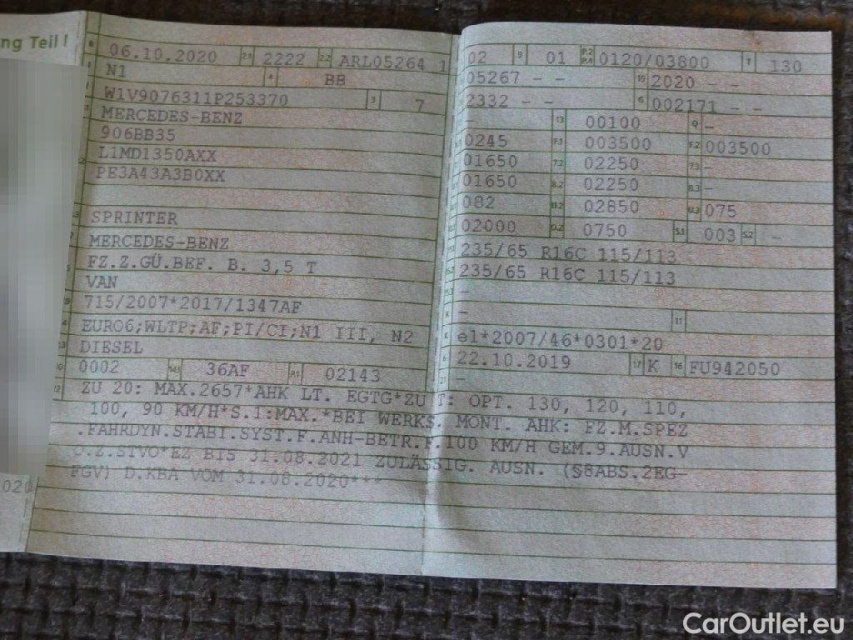 ng Teil I
06.10.2020 2222 ARL05264 1
N1 BB
W1V9076311P253370 7
MERCEDES-BENZ
906BB35
L1MD1350AXX
PE3A43A3B0XX
SPRINTER
MERCEDES-BENZ
FZ.Z.GÜ.BEF. B. 3,5 T
VAN
715/2007*2017/1347AF
EURO6;WLTP;AF;PI/CI;N1 III, N2
DIESEL
0002 36AF 02143
02 01 0120/03800 130
05267 - - 2020 - -
2332 - - 002171 - -
00100 -
0245 003500 003500
01650 02250
01650 02250 -
082 02850 075
02000 0750 003 -
235/65 R16C 115/113
235/65 R16C 115/113
-
-
e1*2007/46*0301*20
22.10.2019 K FU942050
-
ZU 20: MAX.2657*AHK LT. EGTG*ZU T: OPT. 130, 120, 110,
100, 90 KM/H*S.1:MAX.*BEI WERKS. MONT. AHK: FZ.M.SPEZ
.FAHRDYN.STABI.SYST.F.ANH-BETR.F.100 KM/H GEM.9.AUSN.V
O.Z.STVO*EZ BIS 31.08.2021 ZULÄSSIG. AUSN. (§8ABS.2EG-
FGV) D.KBA VOM 31.08.2020***
020
CarOutlet.eu